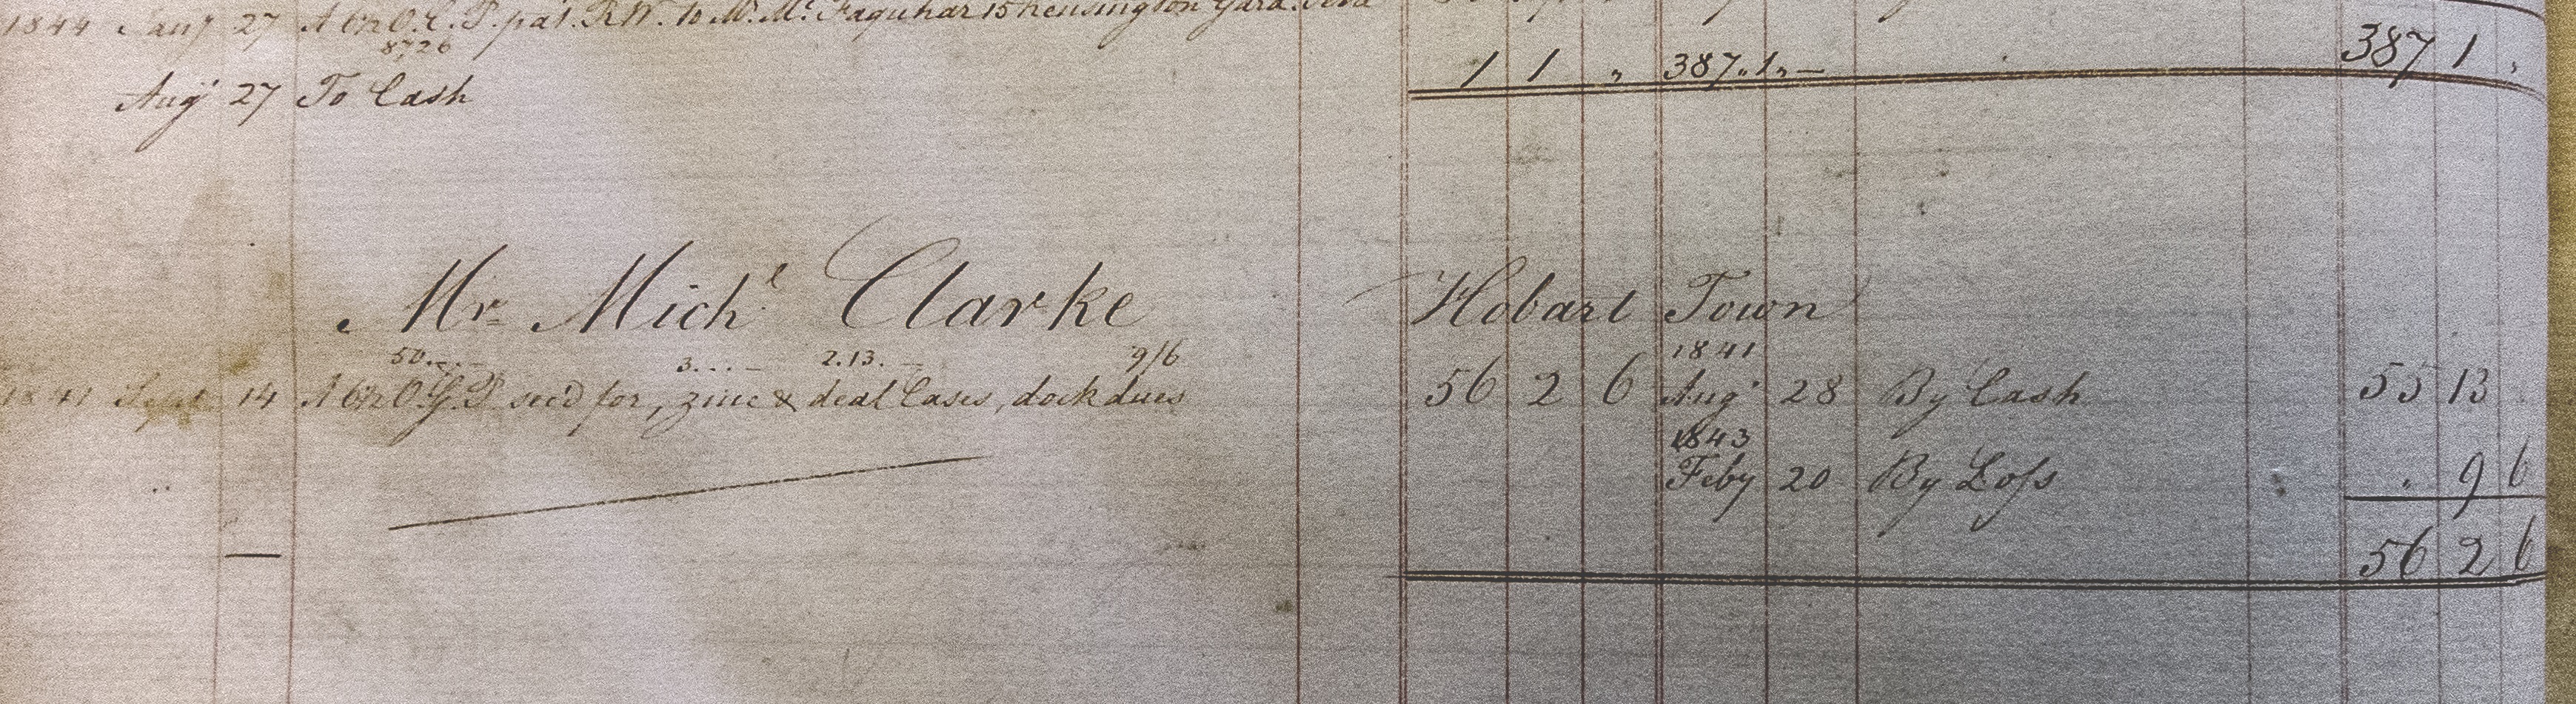 1844 Jany 27 A 6n O.C.P. pat. R.W. to Mr. Mc. Faquhar 15 Kensington Gard.
8726
1 1 „ 387.. 1.. — 387 1 „
Augt 27 To Cash
Mr Michl Clarke Hobart Town
50... — 3... — 2.13. — 9/6 1841
1841 Sept. 14 A 6n O.G.P. sec'd for, zinc & deal Cases, dock dues 56 2 6 Augt 28 By Cash 55 13
1843
Feby 20 By Loſs „ 9 6
56 2 6